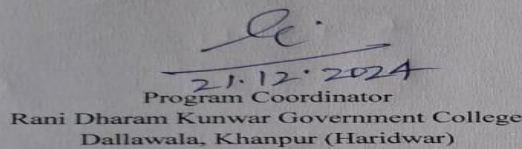 21.12.2024
Program Coordinator
Rani Dharam Kunwar Government College
Dallawala, Khanpur (Haridwar)